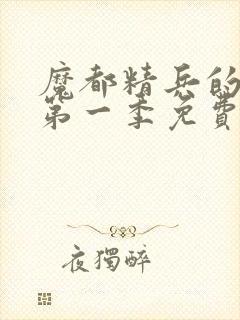 魔都精兵的
第一季免費
夜獨醉